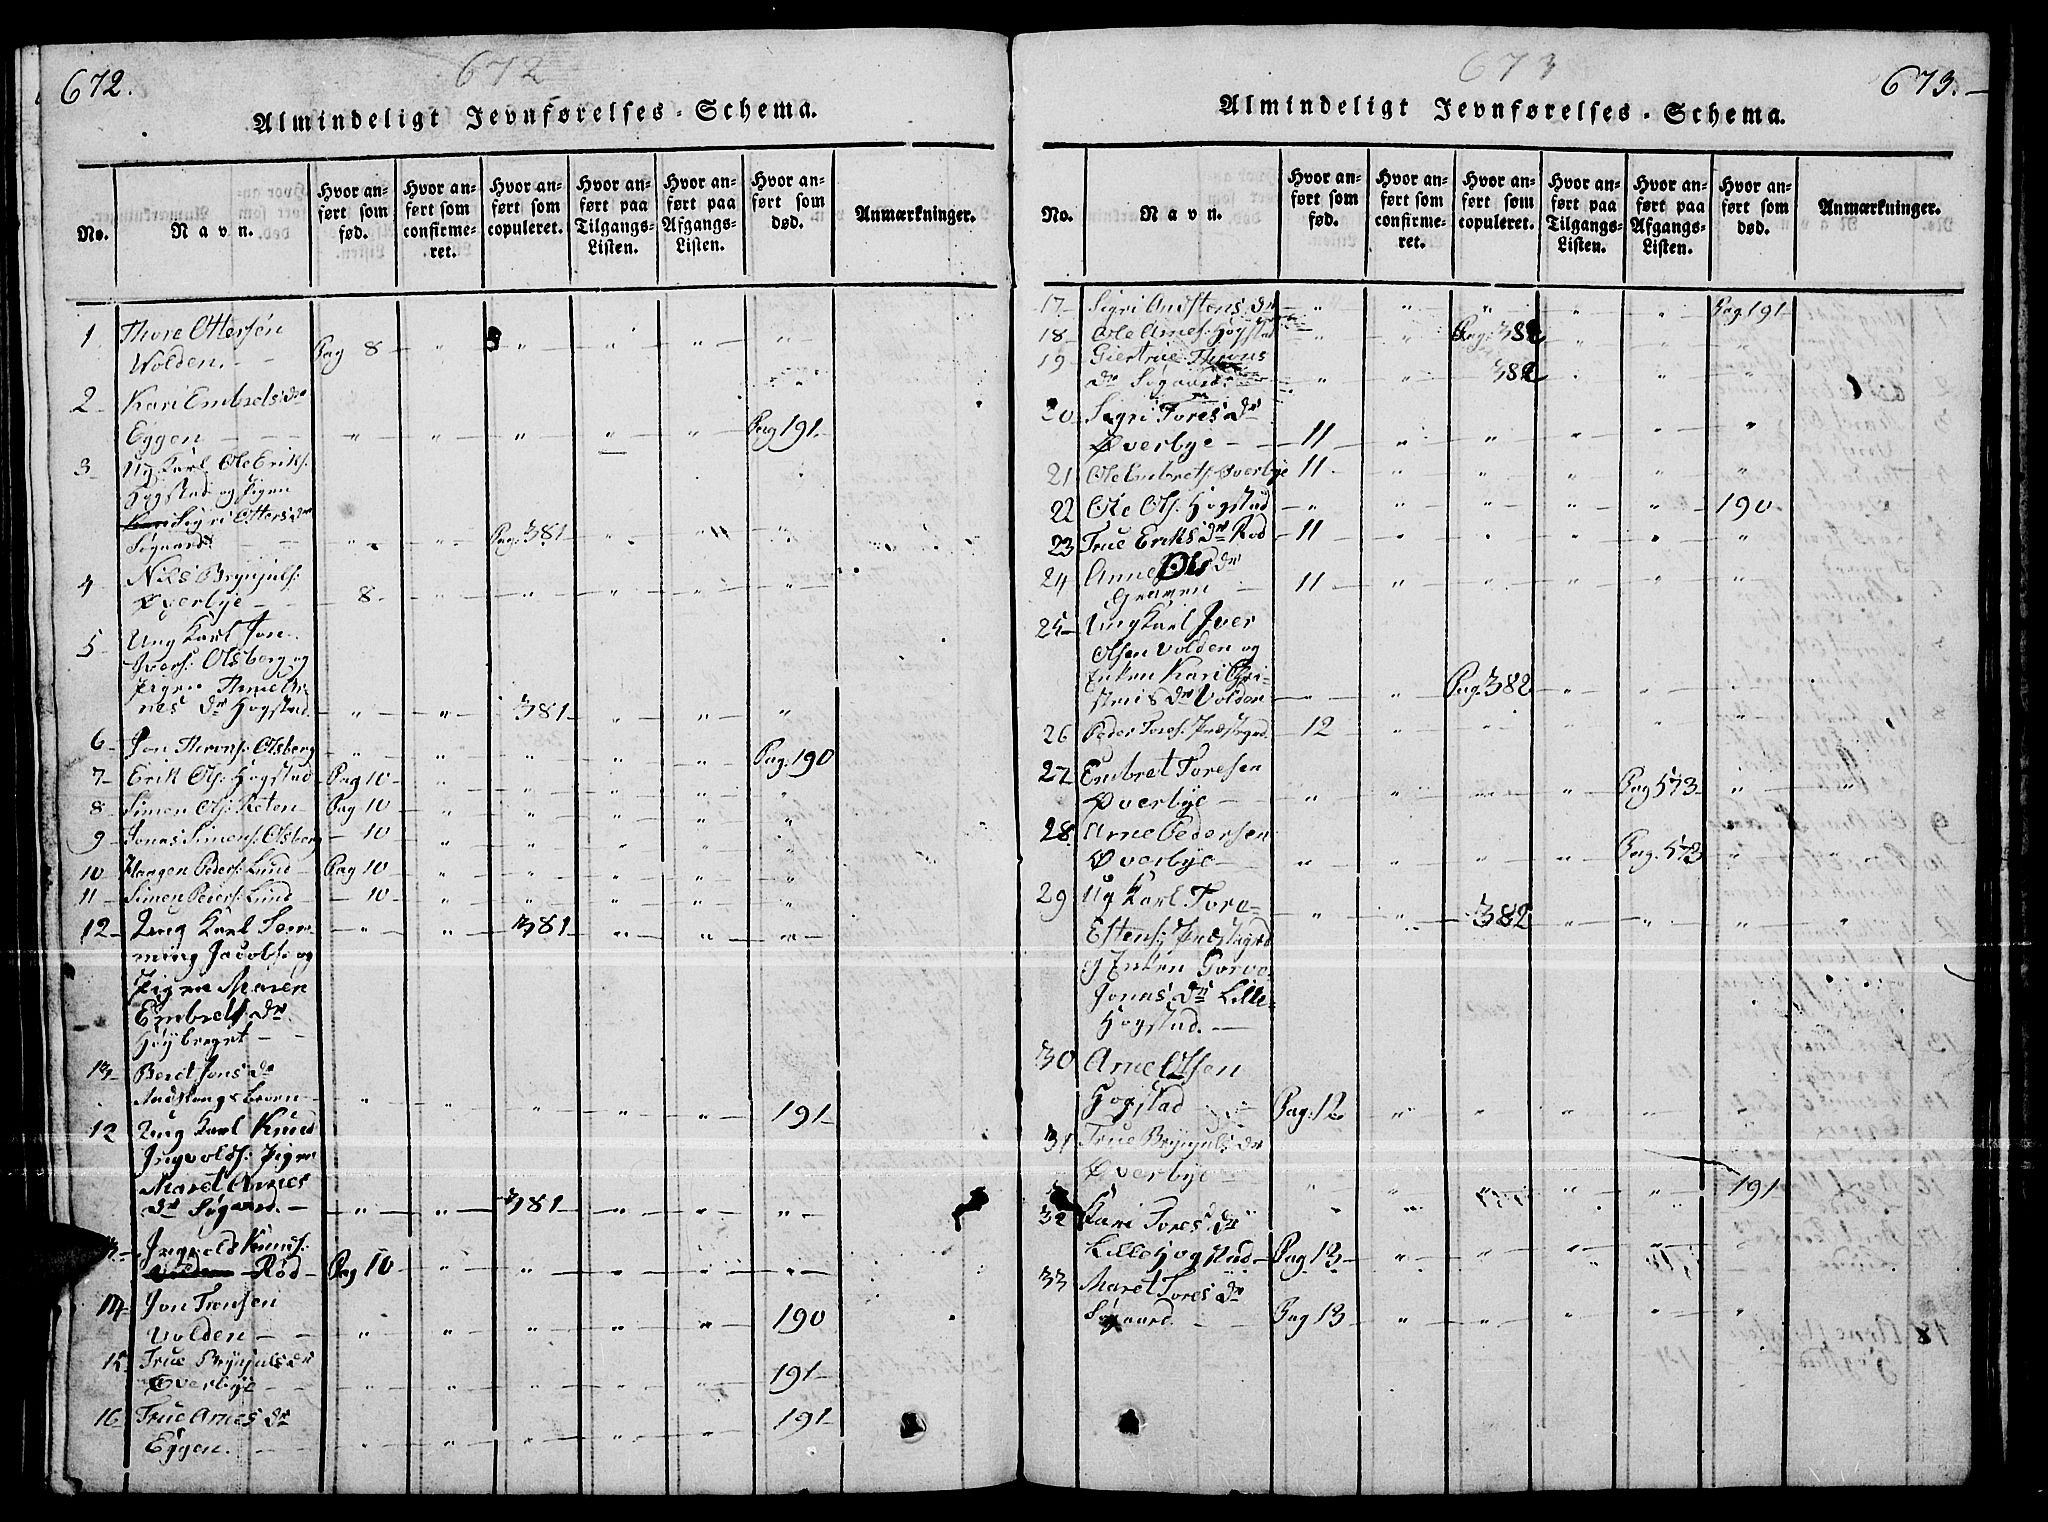 672.
672
Almindeligt Jevnførelses-Schema.
No.
Navn.
Hvor anført som fød.
Hvor anført som confirmeret.
Hvor anført som copuleret.
Hvor anført paa Tilgangs-Listen.
Hvor anført paa Afgangs-Listen.
Hvor anført som død.
Anmærkninger.
1 Thore Ottersøn
Volden. Pag 8
2 Kari Embrets Dr
Eggen Pag 191
3 Ug Karl Ole Eriks:
Hygstad og Pigen
Sigri Otters Dr
Søgaard Pag. 381
4 Nils Brynjuls:
Øverbye 8
5 Ung Karl Jon
Ivers: Olsberg og
Pigen Anne Ar-
nes Dr Hogstad 381
6 Jon Throns: Olsberg Pag. 190
7 Erik Ols: Høgstad Pag 10
8 Simen Ols: Pag 10
9 Jonas Simens: Olsberg 10
10 Haagen Peders: Lund Pag 10
11 Simen Peders: Lund 10
12 Ung Karl Sem-
ming Jacobs: og 381
Pigen Maren
Embrets Dr
Høybraget
13 Beret Jons Dr
191
12 Ung Karl Knud
Ingvolds: Pigen
Maret Arnes
Dr Søgaard. 381
13 Ingvold Knuds:
Rød Pag 10
14 Jon Tronsen
Volden 190
15 True Brynjuls Dr
Øverbye 191
16 True Arnes Dr
Eggen. 191
673
673.
Almindeligt Jevnførelses-Schema.
No.
Navn.
Hvor anført som fød.
Hvor anført som confirmeret.
Hvor anført som copuleret.
Hvor anført paa Tilgangs-Listen.
Hvor anført paa Afgangs-Listen.
Hvor anført som død.
Anmærkninger.
17 Sigri Andstens Dr Pag. 191
18 Ole Arnes: Høgstad Pag. 382
19 Giertrue Throns
Dr Søgaard 382
20 Sigri Tores Dr
Øverbye 11
21 Ole Embrets: Øverbye 11
22 Ole Ols: Hogstad 190
23 True Eriks Dr Rød 11
24 Anne Ols Dr
Graven 11
25 Ung Karl Iver
Olsen Volden og
Enken Kari Chri-
stens Dr Volden Pag. 382
26 Peder Tores: Præstegrd 12
27 Embret Toresen
Øverbye Pag 573
28 Arne Pedersen
Øverbye Pag. 573
29 Ug Karl Tore
Estens: Præstegrd 382
og Enken Gorva
Jonas Dr Lille-
Hogstad.
30 Arne Olsen
Hogstad Pag. 12
31 True Brynjuls Dr
Øverbye 191
32 Kari Tores Dr
Lille Hogstad Pag 13
33 Maret Tores Dr
Søgaard. Pag 13